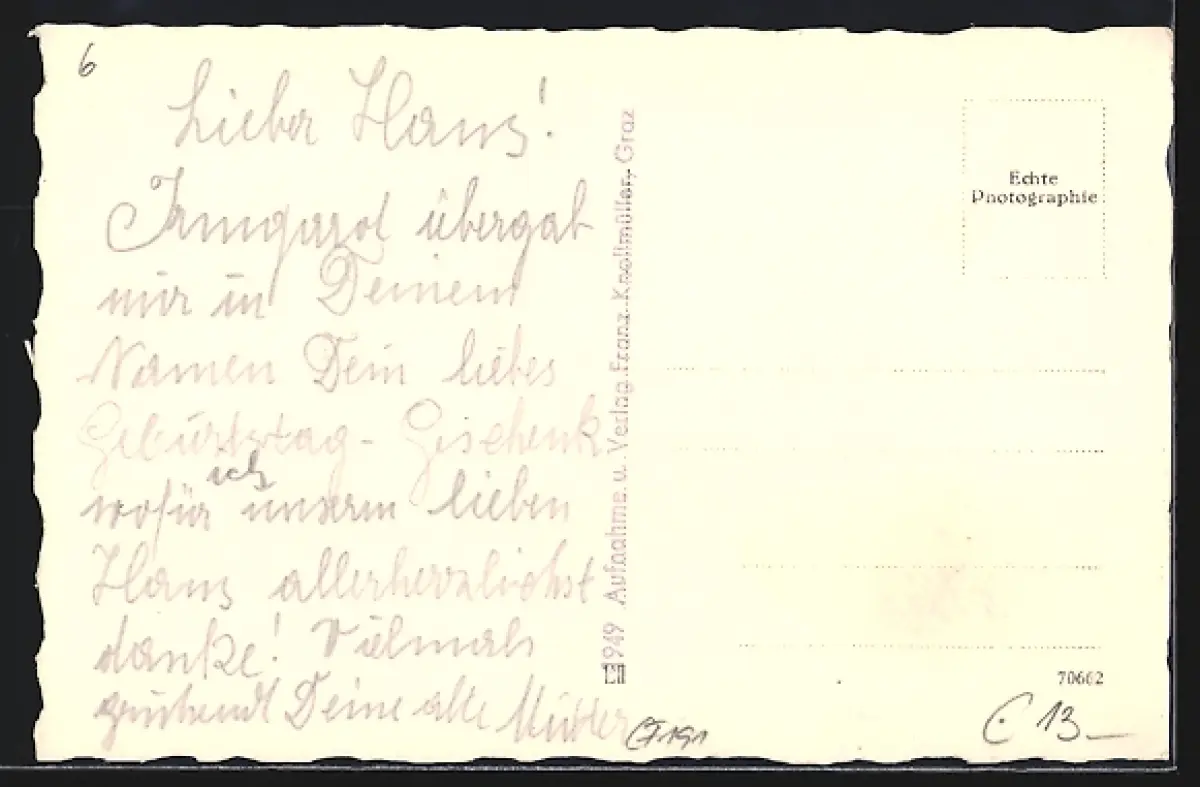 6
Lieber Hans!
Irmgard übergab
mir in Deinem
Namen Dein liebes
Geburtstag- Geschenk
ich
wofür unserm lieben
Hans allerherzlichst
danke! Vielmals
grüßend Deine alte Mutter
949 Aufnahme u. Verlag Franz Knollmüller, Graz
Echte
Photographie
70662
C 13